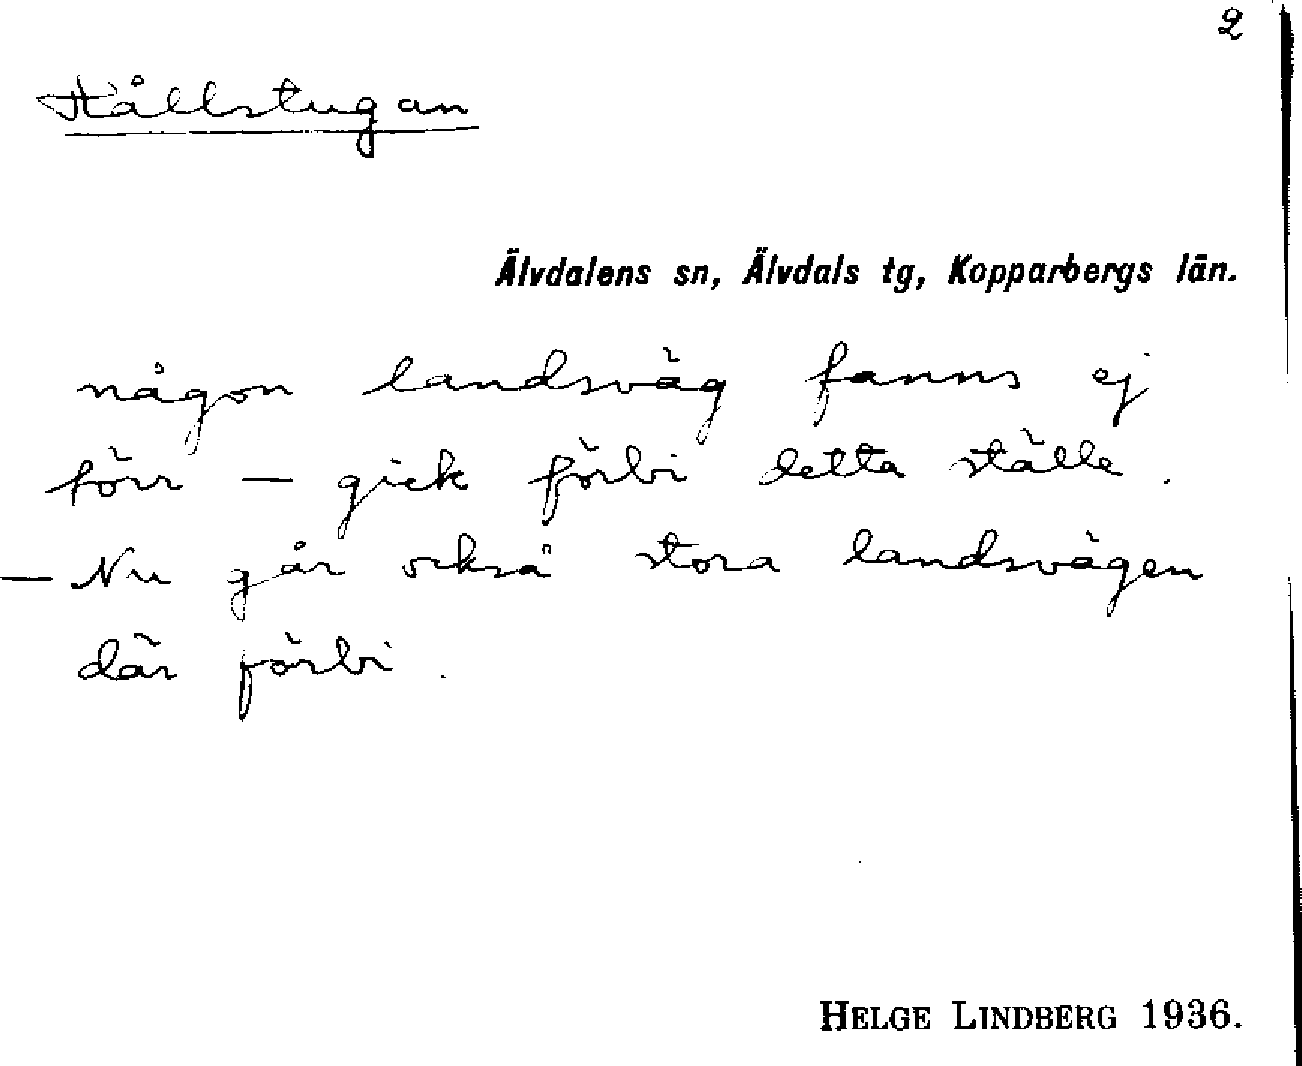 2
Hållstugan
Älvdalens sn, Älvdals tg, Kopparbergs län.
någon landsväg fanns ej
förr — gick förbi detta ställe.
— Nu går också stora landsvägen
där förbi.
HELGE LINDBERG 1936.